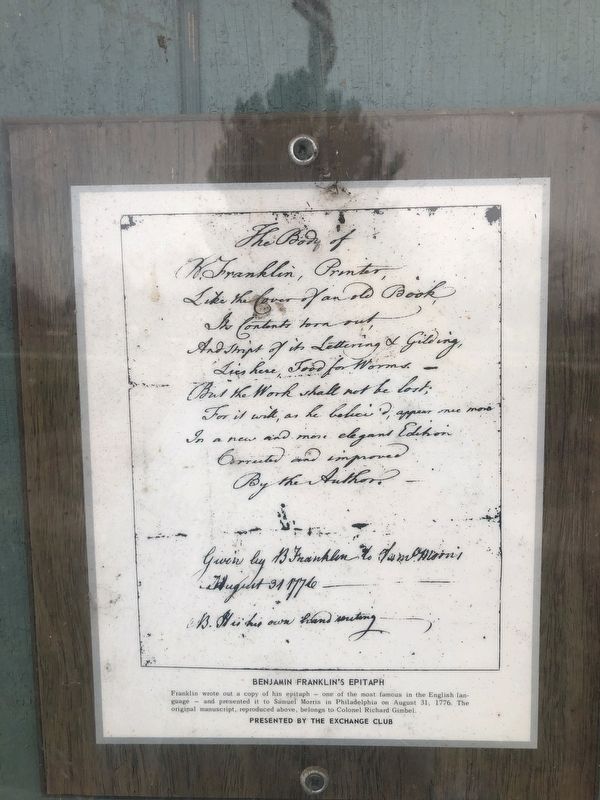 The Body of
B Franklin, Printer,
Like the Cover of an old Book
Its Contents torn out,
And stript of its Lettering & Gilding,
Lies here, Food for Worms. —
But the Work shall not be lost;
For it will, as he believ'd, appear once more
In a new and more elegant Edition
Corrected and improved
By the Author. —
Given by B Franklin to Sam.l Morris
August 31 1776
NB. It is his own hand writing
BENJAMIN FRANKLIN'S EPITAPH
Franklin wrote out a copy of his epitaph — one of the most famous in the English lan-
guage — and presented it to Samuel Morris in Philadelphia on August 31, 1776. The
original manuscript, reproduced above, belongs to Colonel Richard Gimbel.
PRESENTED BY THE EXCHANGE CLUB